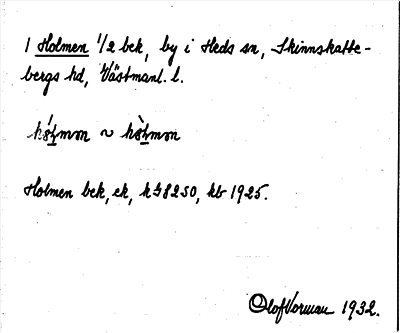 1 Holmen 1/2 bek, by i Heds sn, Skinnskatte-
bergs hd, Västmanl. l.
hólmɔn ~ hòlmɔn
Holmen bek, ek, k58250, kb 1925.
Olof Vorman 1932.